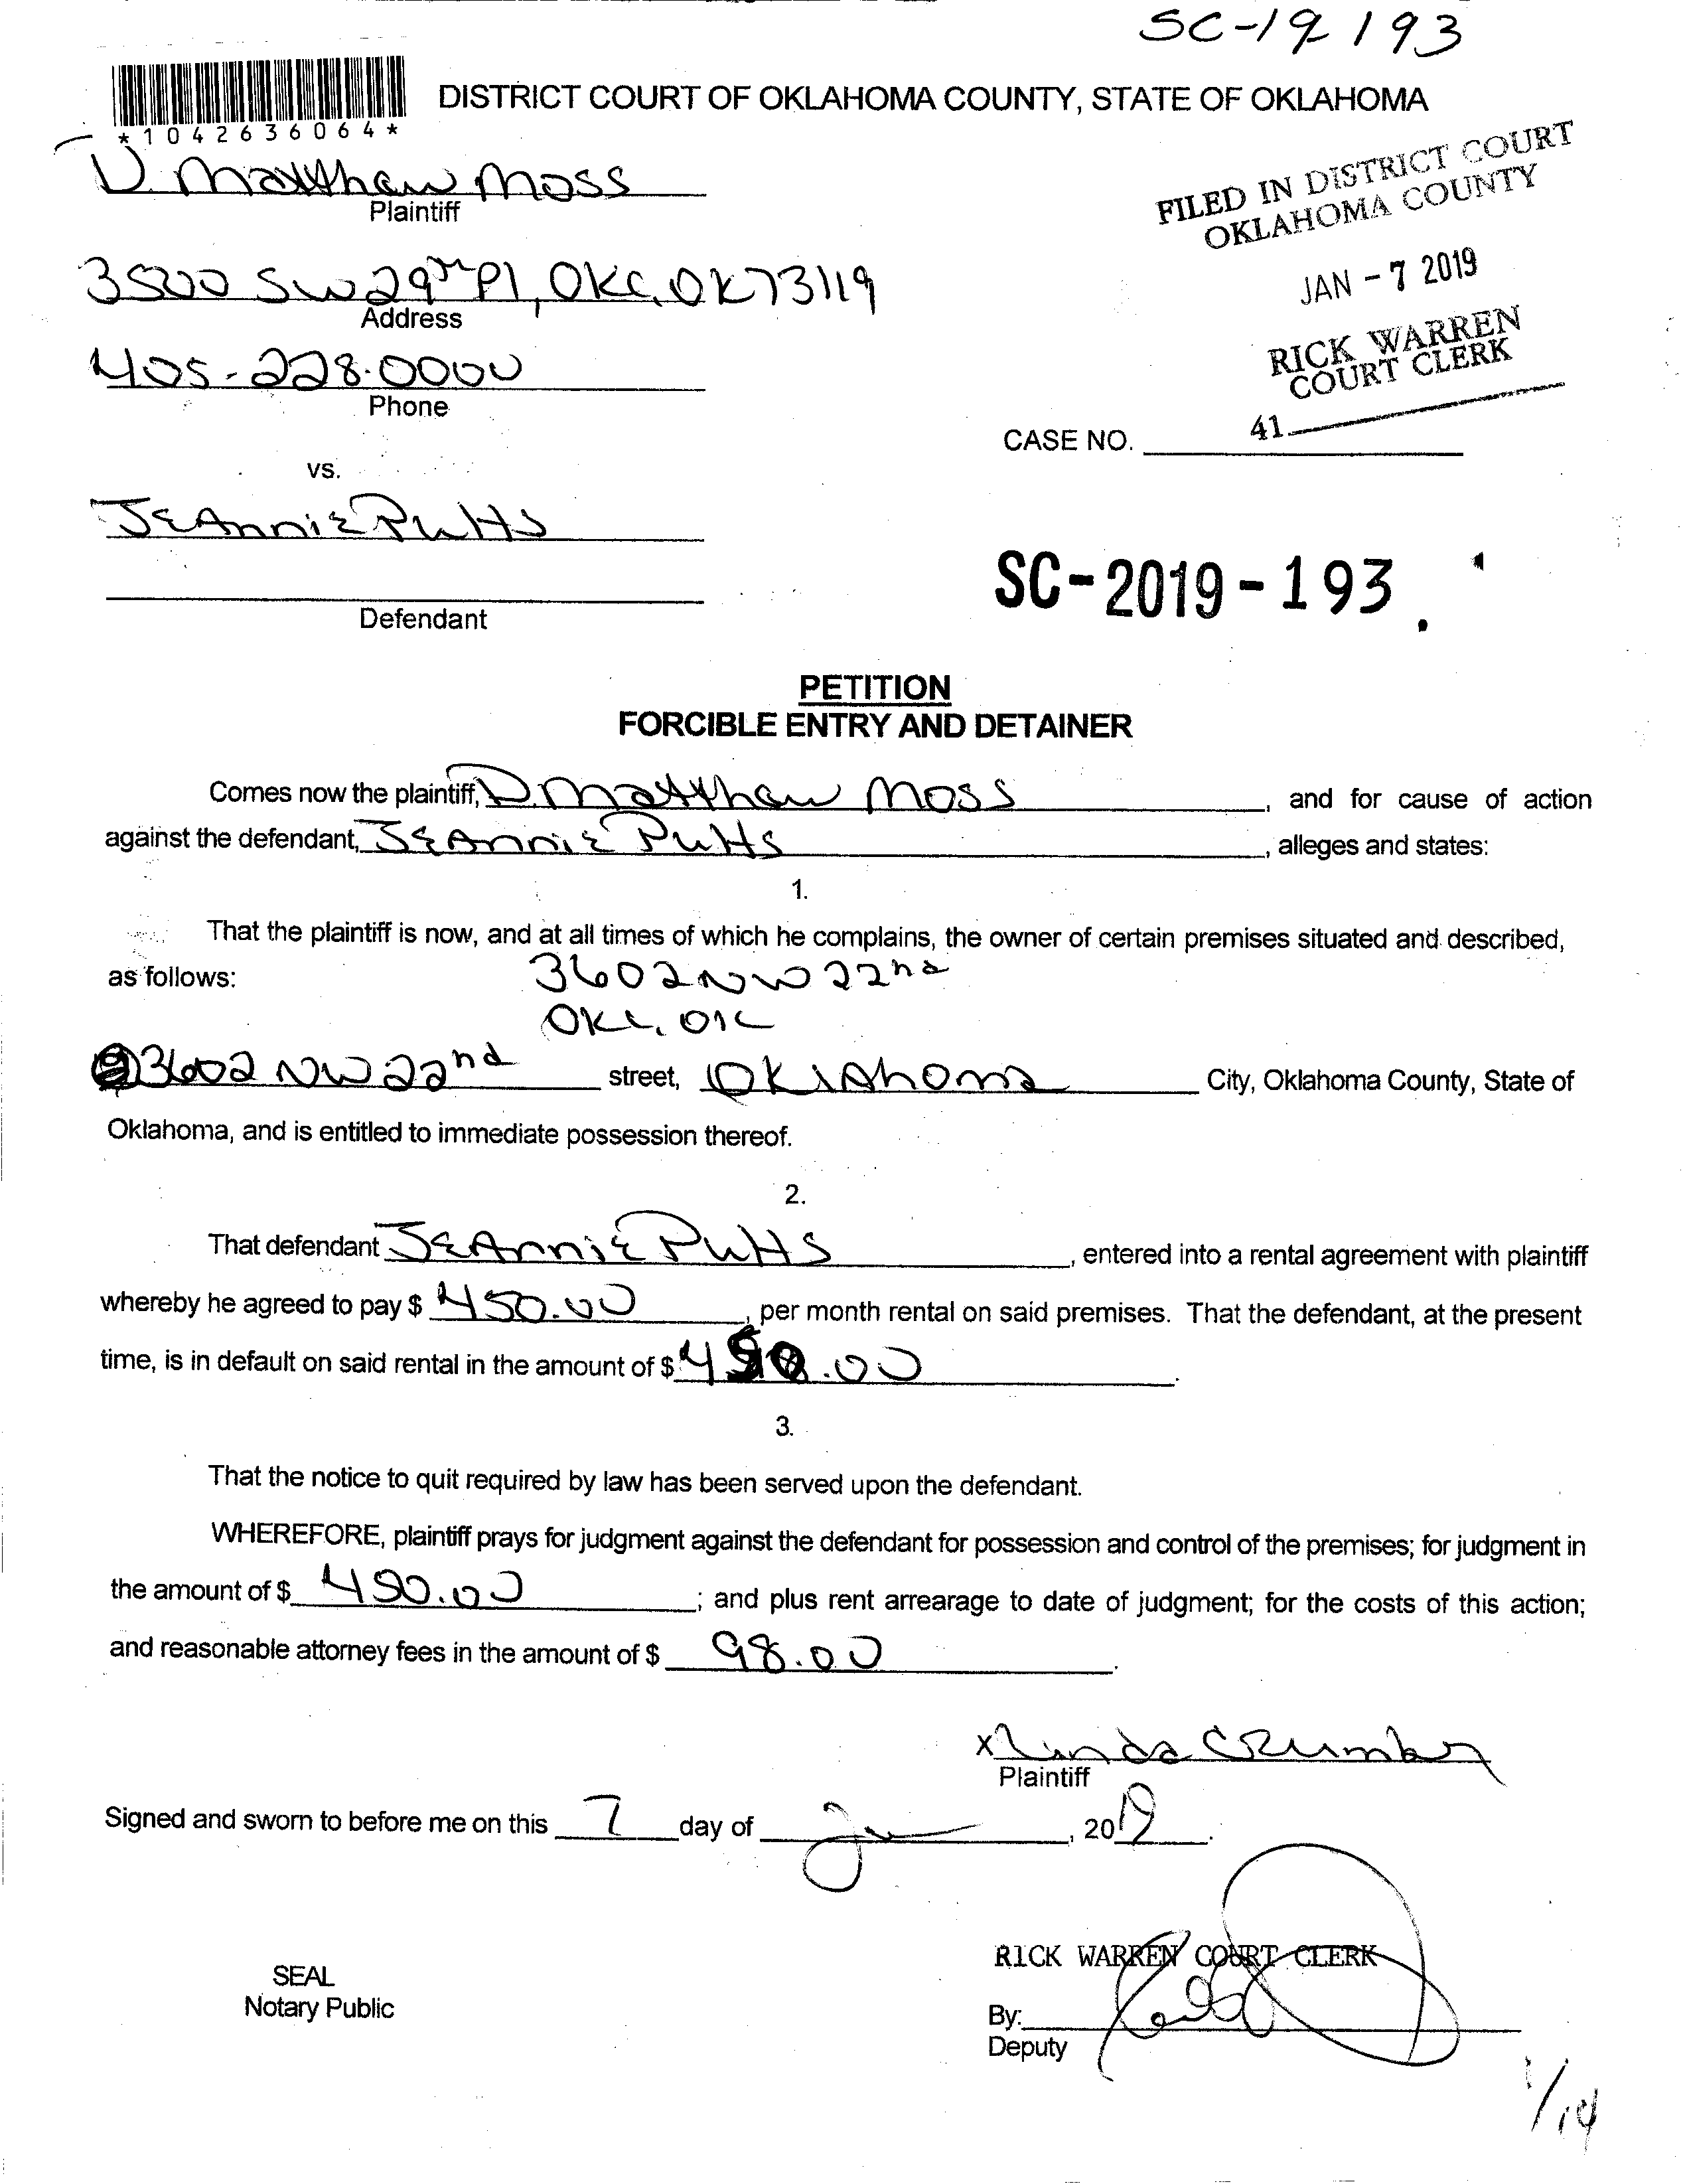 SC-19 193
*1042636064*
DISTRICT COURT OF OKLAHOMA COUNTY, STATE OF OKLAHOMA
D. Matthew Moss
Plaintiff
FILED IN DISTRICT COURT
OKLAHOMA COUNTY
JAN - 7 2019
RICK WARREN
COURT CLERK
41
3500 SW 29th Pl, OKC, OK 73119
Address
405-228-0000
Phone
CASE NO.
vs.
JEAnniE Putts
Defendant
SC-2019-193
PETITION
FORCIBLE ENTRY AND DETAINER
Comes now the plaintiff, D. Matthew Moss, and for cause of action
against the defendant, JEAnniE Putts, alleges and states:
1.
That the plaintiff is now, and at all times of which he complains, the owner of certain premises situated and described,
as follows: 3602 NW 22nd
OKC, OK
3602 NW 22nd street, OKlAhoma City, Oklahoma County, State of
Oklahoma, and is entitled to immediate possession thereof.
2.
That defendant JEAnniE Putts, entered into a rental agreement with plaintiff
whereby he agreed to pay $ 450.00, per month rental on said premises. That the defendant, at the present
time, is in default on said rental in the amount of $
3.
That the notice to quit required by law has been served upon the defendant.
WHEREFORE, plaintiff prays for judgment against the defendant for possession and control of the premises; for judgment in
the amount of $ 450.00; and plus rent arrearage to date of judgment; for the costs of this action;
and reasonable attorney fees in the amount of $ 98.00.
X Linda Crumby
Plaintiff
Signed and sworn to before me on this 7 day of Jan, 2019.
RICK WARREN COURT CLERK
SEAL
Notary Public
By:
Deputy
1/14